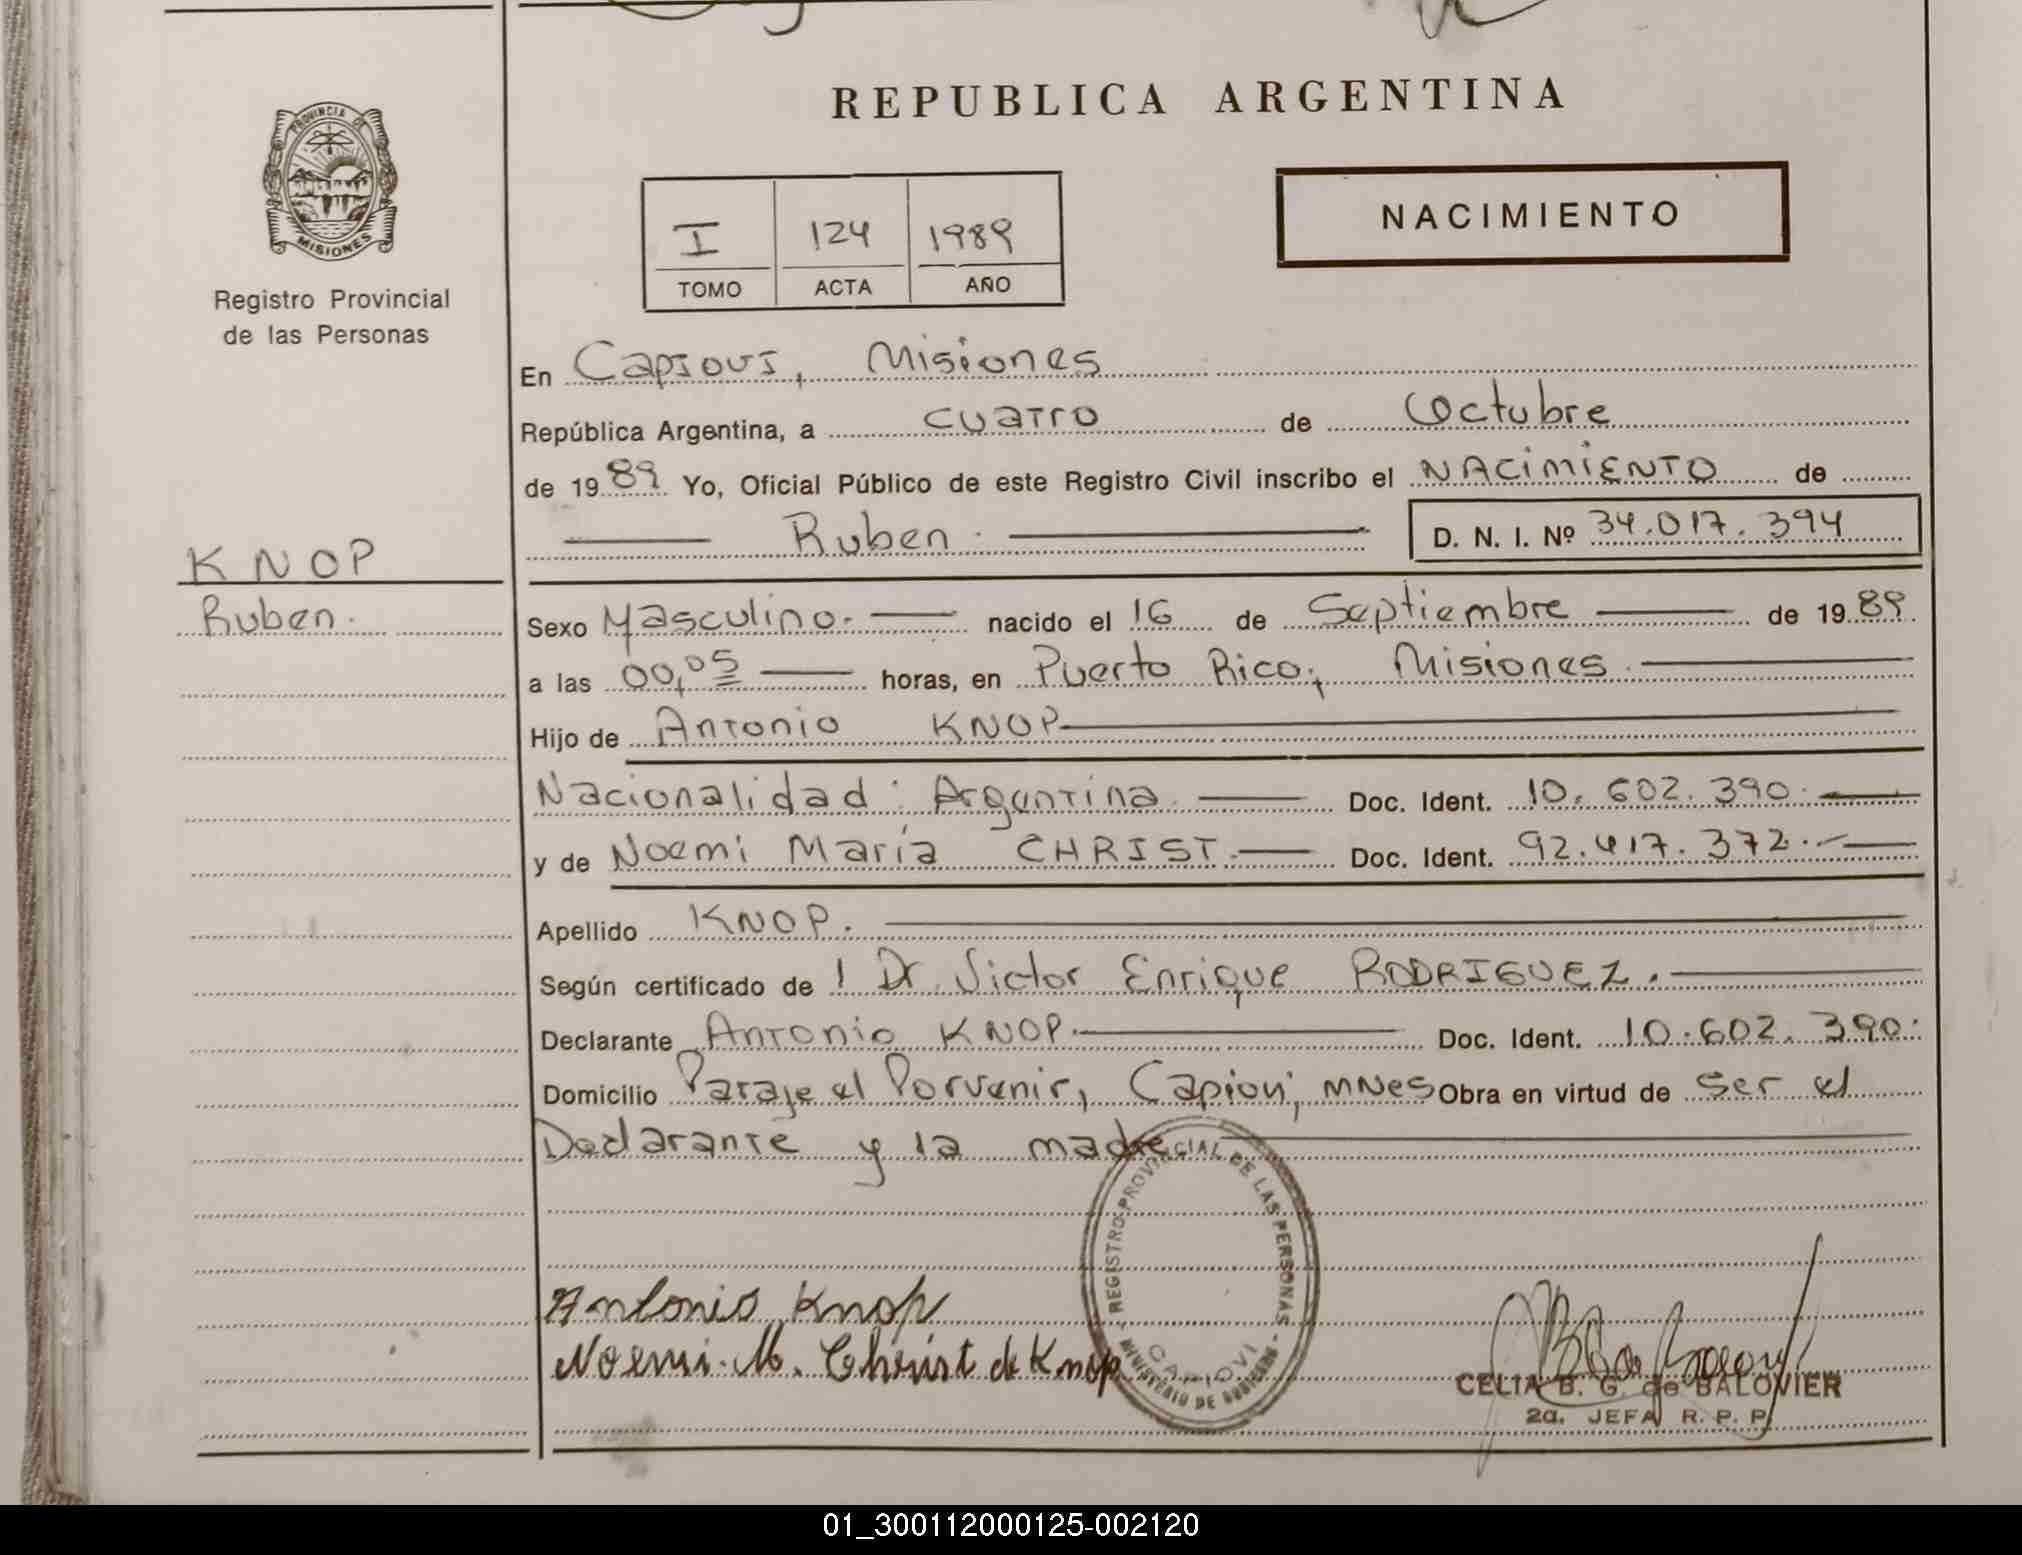 REPUBLICA ARGENTINA
PROVINCIA DE MISIONES
Registro Provincial
de las Personas
I 124 1989
TOMO ACTA AÑO
NACIMIENTO
En Capiovi, Misiones
República Argentina, a cuatro de Octubre
de 1989 Yo, Oficial Público de este Registro Civil inscribo el NACIMIENTO de
Ruben. D. N. I. Nº 34.017.394
KNOP
Ruben.
Sexo Masculino. nacido el 16 de Septiembre de 1989.
a las 00,05 horas, en Puerto Rico, Misiones.
Hijo de Antonio KNOP
Nacionalidad: Argentina. Doc. Ident. 10.602.390.
y de Noemi María CHRIST. Doc. Ident. 92.417.372.
Apellido KNOP.
Según certificado de l Dr. Victor Enrique RODRIGUEZ.
Declarante Antonio KNOP. Doc. Ident. 10.602.390.
Domicilio Paraje el Porvenir, Capiovi, MNES Obra en virtud de ser el
Declarante y la madre
REGISTRO PROVINCIAL DE LAS PERSONAS
CAPIOVI
MINISTERIO DE GOBIERNO
Antonio Knop
Noemi. M. Christ de Knop
CELIA B. G. de BALOVIER
2a. JEFA R. P. P.
01_300112000125-002120